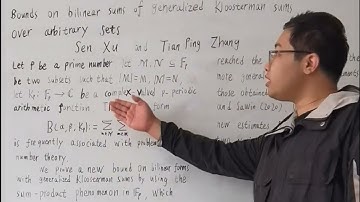 Bounds on bilinear sums of generalized Kloosterman sums
over arbitrary sets
Sen Xu and Tian Ping Zhang
Let P be a prime number let M, N ⊆ Fp
be two subsets such that |M|=M, |N|=N,
let Kf: Fp → C be a complex valued p-periodic
arithmetic function. The form
B(α, β, Kf):= ΣΣ
is frequently associated with problems
number theory.
We prove a new bound on bilinear forms
with generalized Kloosterman sums by using the
sum-product phenomenon in Fp, which
reached the
more general
those of
and Sawin (2020)
new estimates